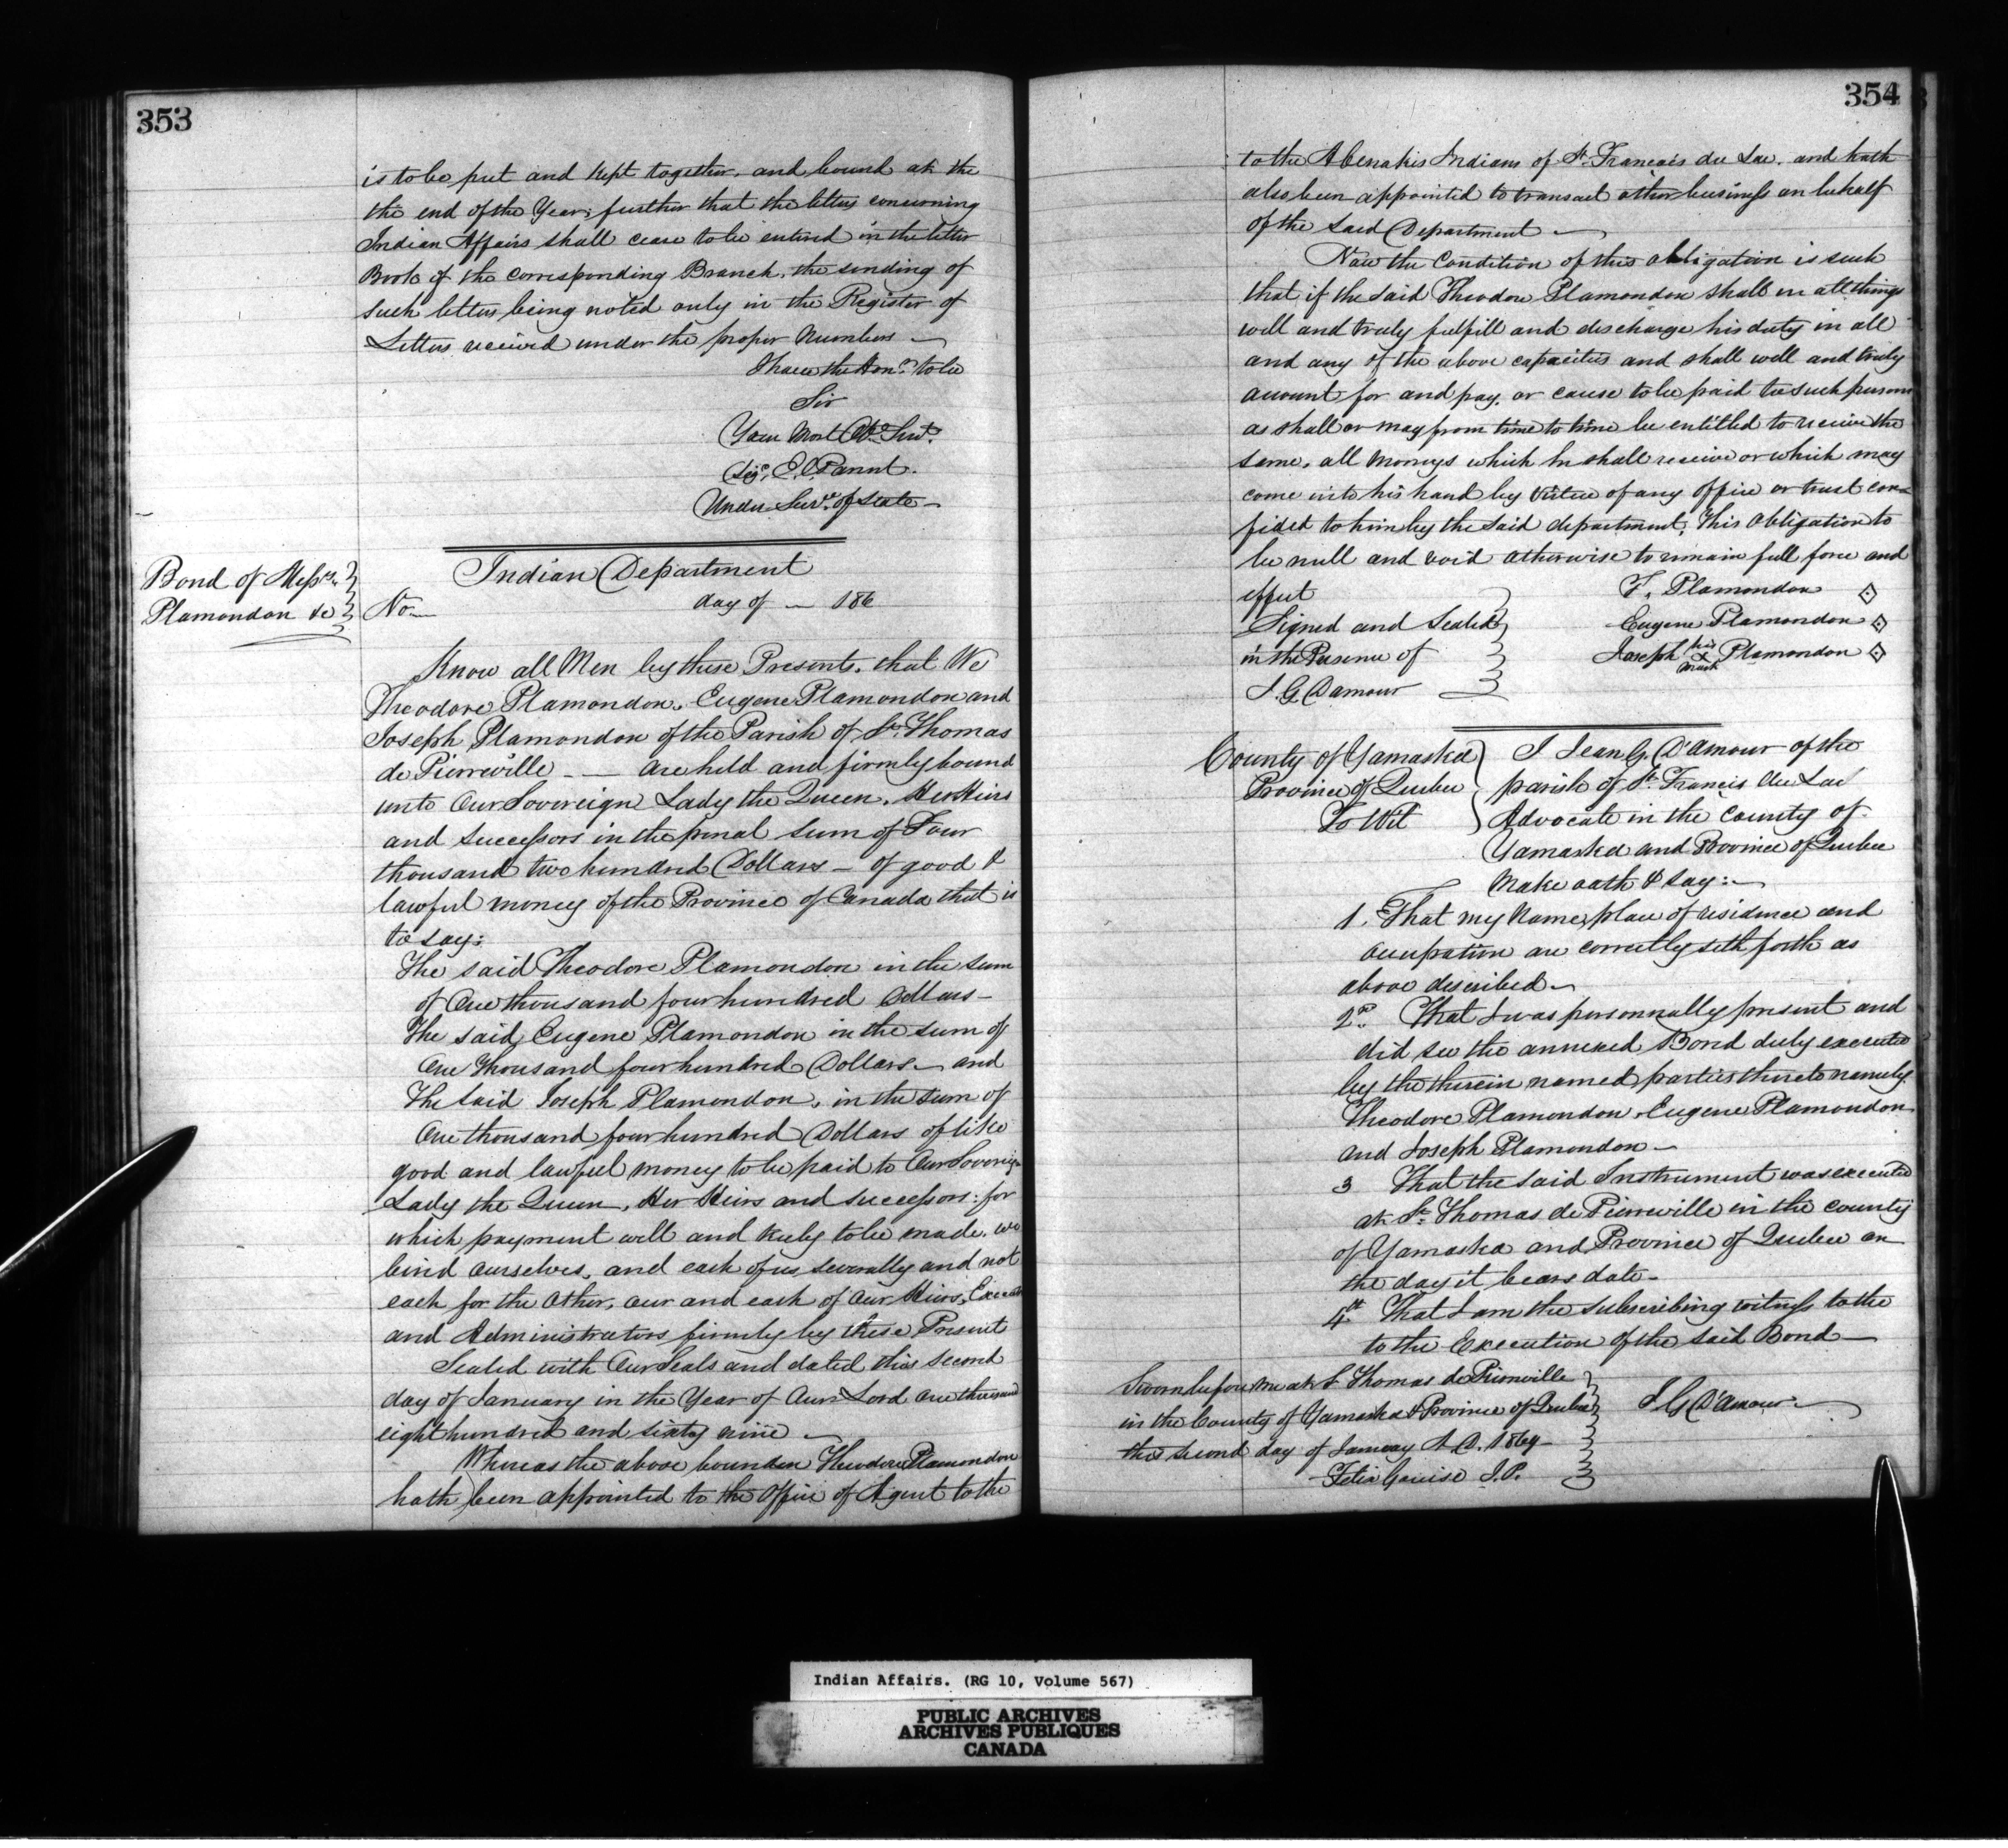 353
is to be put and kept together, and bound at the
the end of the Year, further that the letters concerning
Indian Affairs shall cease to be entered in the letter
Book of the corresponding Branch, the sending of
such letters being noted only in the Register of
Letters received under the proper Numbers —
I have the Honr. to be
Sir
Your Most Obt. Servt.
Sigd. E. Parent.
Under Secy. of State —
Bond of Messrs.
Plamondon &c
Indian Department
No — day of — 186
Know all Men by these Presents, that We
Theodore Plamondon, Eugene Plamondon and
Joseph Plamondon of the Parish of St. Thomas
de Pierreville — — are held and firmly bound
unto Our Sovereign Lady the Queen, Her Heirs
and successors in the penal sum of Four
thousand two hundred Dollars — of good &
lawful money of the Province of Canada that is
to say:
The said Theodore Plamondon in the sum
of One thousand four hundred Dollars —
The said Eugene Plamondon in the sum of
One thousand four hundred Dollars — and
The said Joseph Plamondon, in the sum of
One thousand four hundred Dollars of like
good and lawful money to be paid to Our Sovereign
Lady the Queen, Her Heirs and successors: for
which payment well and truly to be made, we
bind ourselves, and each of us, severally and not
each for the other, our and each of our Heirs,
and Administrators firmly by these Present
Sealed with Our Seals and dated this second
day of January in the Year of Our Lord one thousand
eight hundred and sixty nine —
Whereas the above bounden Theodore Plamondon
hath been appointed to the Office of Agent to the
354
to the Abenakis Indians of St. Francois du Lac. and hath
also been appointed to transact other business on behalf
of the said Department —
Now the Condition of this obligation is such
that, if the said Theodore Plamondon shall in all things
well and truly fulfill and discharge his duty in all
and any of the above capacities and shall well and truly
account for and pay, or cause to be paid to such persons
as shall or may from time to time be entitled to receive the
same, all Moneys which he shall receive or which may
come into his hand by virtue of any Office or trust con-
fided to him by the said department, this obligation to
be null and void otherwise to remain full force and
effect
F. Plamondon
Eugene Plamondon
Joseph his X mark Plamondon
Signed and Sealed
in the Presence of
J. G. Damour
County of Yamaska
Province of Quebec
To Wit
I Jean G. D'Amour of the
parish of St. Francis du Lac
Advocate in the County of
Yamaska and Province of Quebec
Make oath & say: —
1. That my Name, place of residence and
occupation are correctly seth forth as
above described —
2d. That I was personnally present and
did see the annexed Bond duly executed
by the therein named parties thereto namely
Theodore Plamondon, Eugene Plamondon
and Joseph Plamondon —
3 That the said Instrument was executed
at St. Thomas de Pierreville in the county
of Yamaska and Province of Quebec on
the day it bears date —
4th. That I am the subscribing witness to the
to the Execution of the said Bond —
Sworn before me at St Thomas de Pierreville
in the County of Yamaska & Province of Quebec
this second day of January A.D. 1869 —
J G D'Amour —
Felix J.P.
Indian Affairs. (RG 10, Volume 567)
PUBLIC ARCHIVES
ARCHIVES PUBLIQUES
CANADA